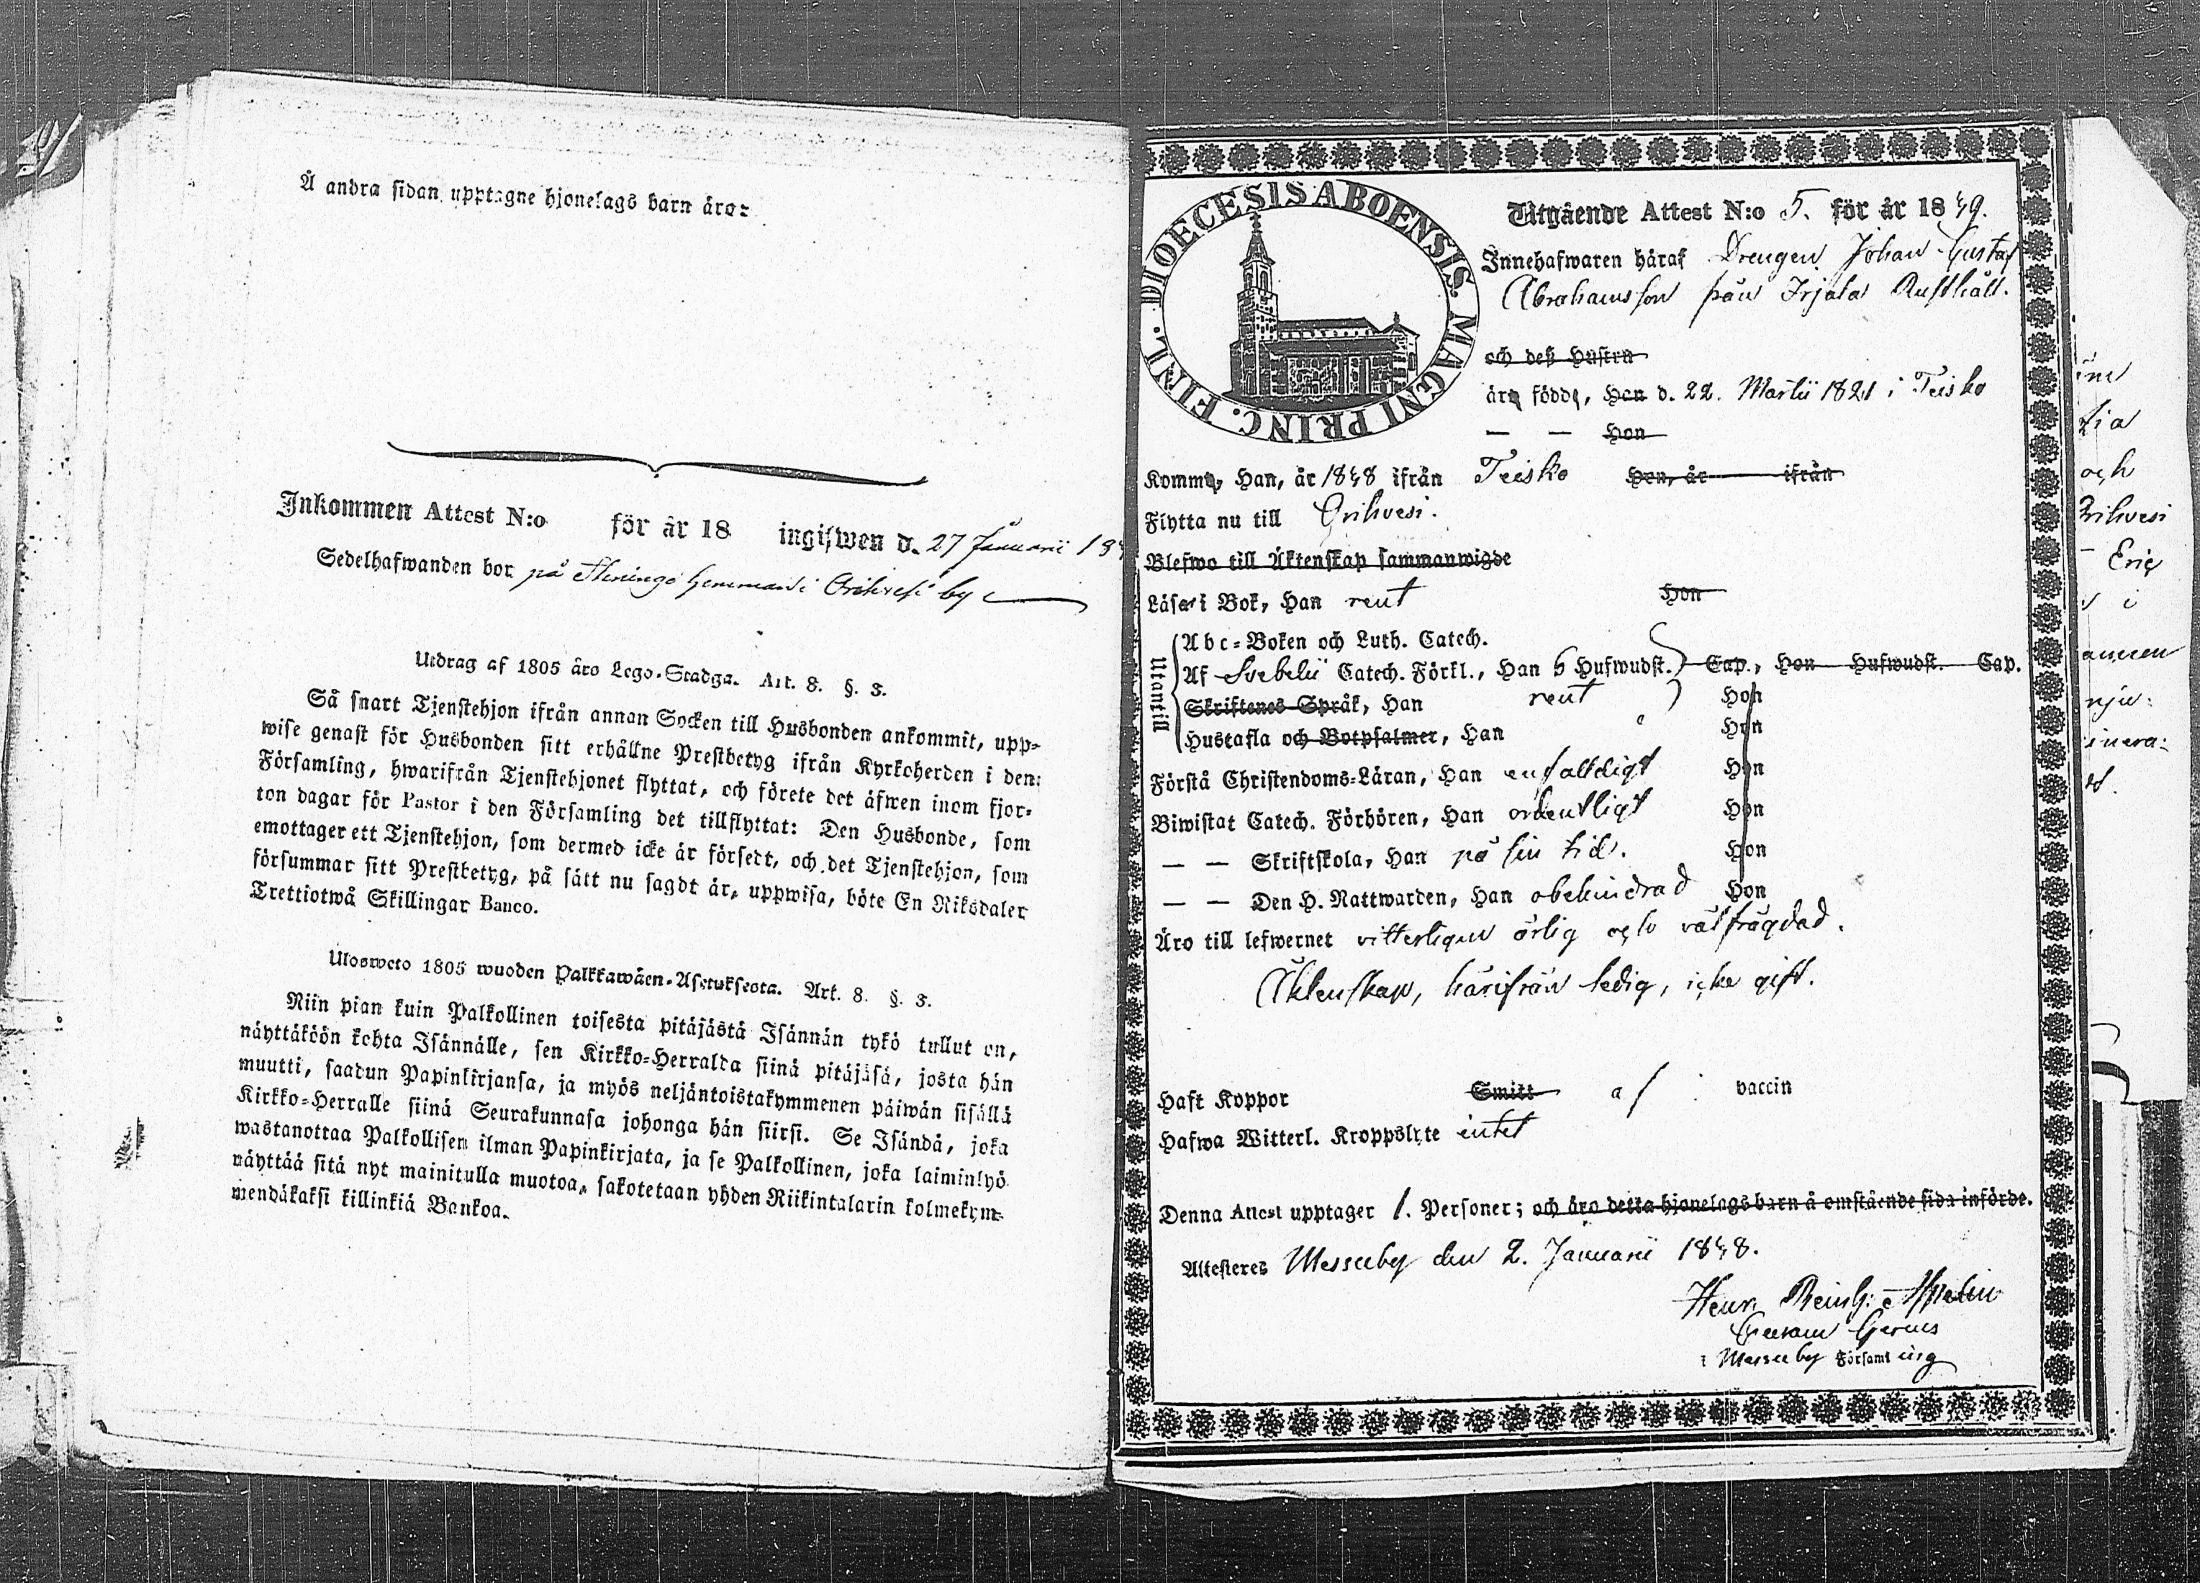 Å andra sidan upptagne hjonelags barn äro:
Inkommen Attest N:o för år 18 ingifwen d. 27 Januarii 184
Sedelhafwanden bor på Heninge hemman i Orihvesi by
Utdrag af 1805 års Lego-Stadga. Art. 8. §. 3.
Så snart Tjenstehjon ifrån annan Socken till Husbonden ankommit, upp-
wise genast för Husbonden sitt erhållne Prestbetyg ifrån Kyrkoherden i den
Församling, hwarifrån Tjenstehjonet flyttat, och förete det äfwen inom fjor-
ton dagar för Pastor i den Församling det tillflyttat: Den Husbonde, som
emottager ett Tjenstehjon, som dermed icke är försedt, och det Tjenstehjon, som
försummar sitt Prestbetyg, på sätt nu sagdt är, uppwisa, böte En Riksdaler
Trettiotwå Skillingar Banco.
Ulosweto 1805 wuoden Palkkawäen-Asetuksesta. Art. 8. §. 3.
Niin pian kuin Palkollinen toisesta pitäjästä Isännän tykö tullut on,
näyttäköön kohta Isännälle, sen Kirkko-Herralda siinä pitäjäsä, josta hän
muutti, saadun Papinkirjansa, ja myös neljäntoistakymmenen päiwän sisällä
Kirkko-Herralle siinä Seurakunnasa johonga hän siirsi. Se Isändä, joka
wastanottaa Palkollisen ilman Papinkirjata, ja se Palkollinen, joka laiminlyö
näyttää sitä nyt mainitulla muotoa, sakotetaan yhden Riikintalarin kolmekym-
mendäkaksi killinkiä Bankoa.
DIOECESIS ABOENSIS. MAGNI PRINC. FINL.
Utgående Attest N:o 5. för år 1849.
Innehafwaren häraf Drengen Johan Gustaf
Abrahamsson från Irjala Rusthåll.
och deß Hustru
äro födde, Han d. 22. Martii 1821 i Teisko
— — Hon
Kommo, Han, år 1848 ifrån Teisko Hon, år ifrån
Flytta nu till Orihvesi.
Blefwo till Äktenskap sammanwigde
Läsa i Bok, Han rent Hon
Utantill
Abc-Boken och Luth. Catech.
Af Svebelii Catech. Förkl., Han 6 Hufwudst. Cap., Hon Hufwudst. Cap.
Skriftenes Språk, Han rent Hon
Hustafla och Botpsalmer, Han Hon
Förstå Christendoms-Läran, Han enfaldigt Hon
Biwistat Catech. Förhören, Han ordentligt Hon
— — Skriftskola, Han på sin tid. Hon
— — Den H. Nattwarden, Han obehindrad Hon
Äro till lefwernet vitterligen ärlig och välfrägdad.
Äktenskap, härifrån ledig, icke gift.
Haft Koppor Smitt af vaccin
Hafwa Witterl. Kroppslyte intet
Denna Attest upptager 1. Personer; och äro detta hjonelags barn å omstående sida införde.
Attesteres Messuby den 2. Januarii 1848.
Henr. Reinh:
i Messuby Församling
och
Orihvesi
Eric
i